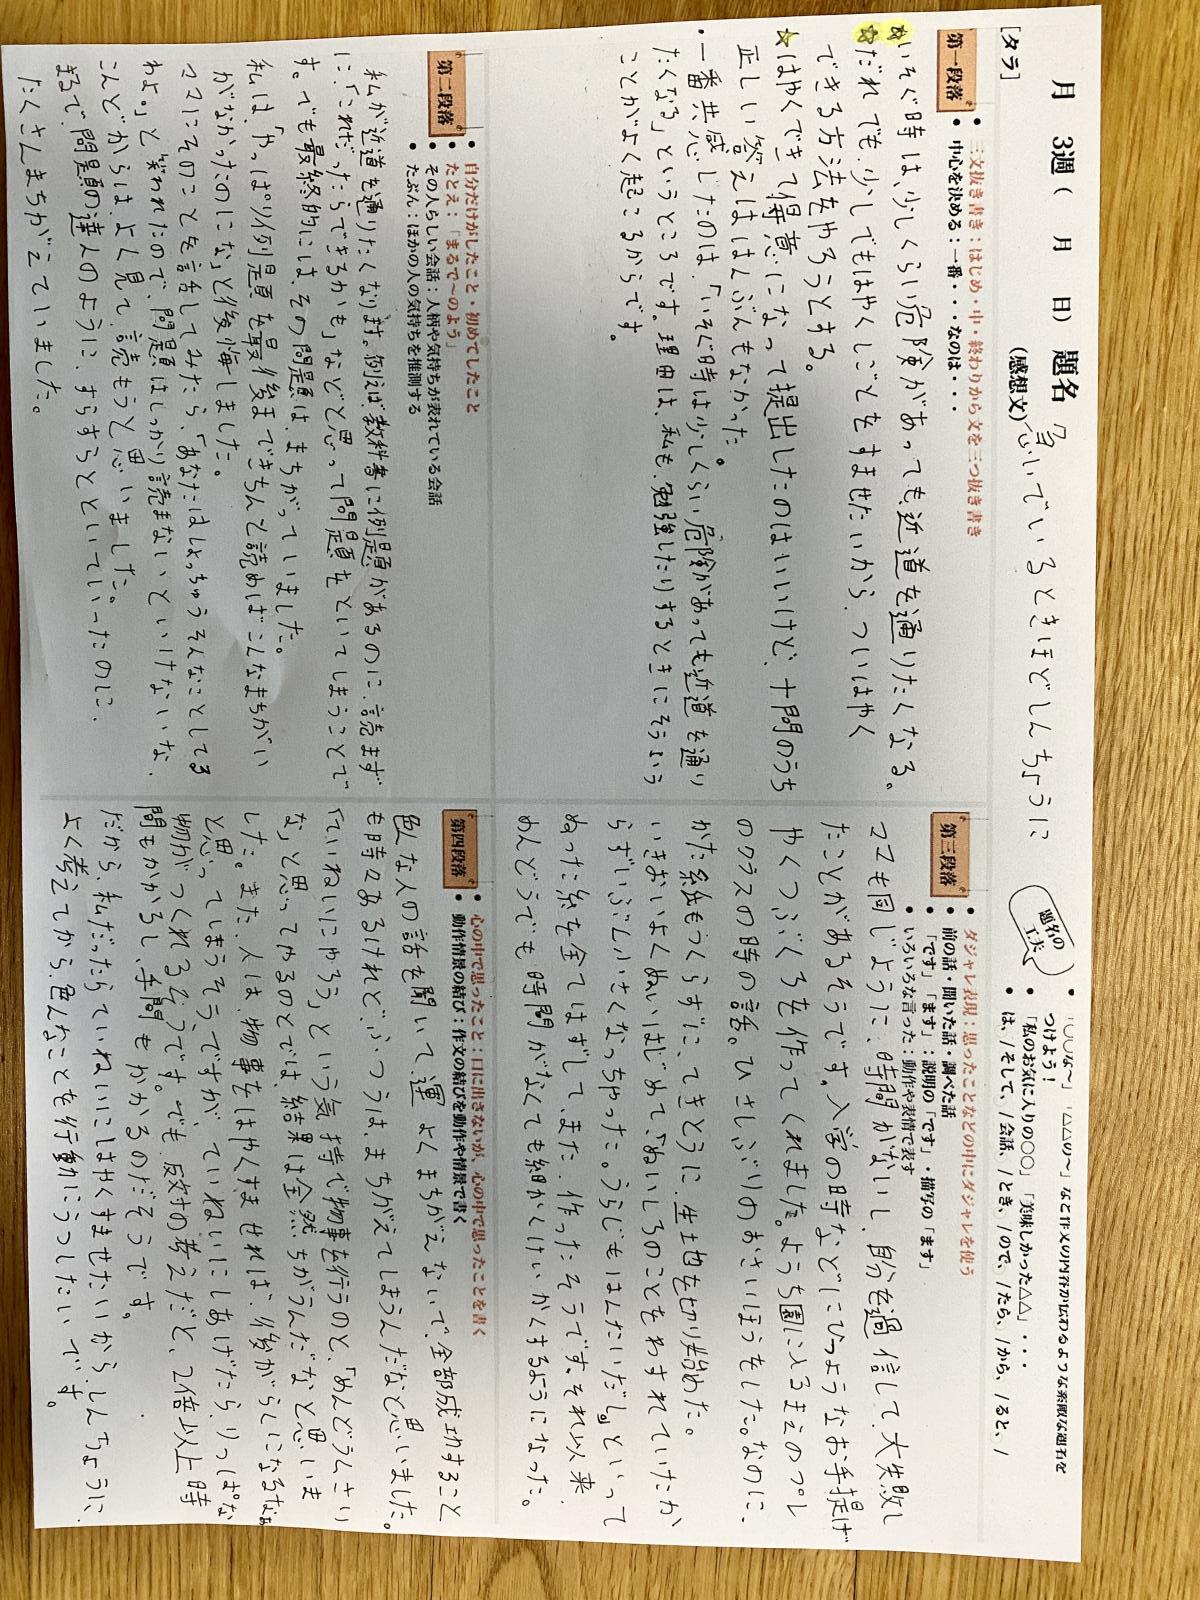 月　3週（　月　日）　題名　急いでいるときほどしんちょうに
（感想文）
［タラ］
題名の工夫
• 「○○な～」「△△の～」など作文の内容が伝わるような素敵な題名をつけよう！
• 「私のお気に入りの○○」「美味しかった△△」・・・
• は、/そして、/会話、/とき、/ので、/たら、/から、/ると、/
第一段落
• 三文抜き書き：はじめ・中・終わりから文を三つ抜き書き
• 中心を決める：一番・・・なのは・・・
☆いそぐ時は、少しくらい危険があっても、近道を通りたくなる。
☆だれでも、少しでもはやくしごとをすませたいから、ついはやく
できる方法をやろうとする。
☆はやくできて得意になって提出したのはいいけど、十問のうち
正しい答えははんぶんもなかった。
・一番共感したのは、「いそぐ時は少しくらい危険があっても近道を通り
たくなる」というところです。理由は、私も、勉強したりするときにそういう
ことがよく起こるからです。
第二段落
• 自分だけがしたこと・初めてしたこと
• たとえ：「まるで～のよう」
• その人らしい会話：人柄や気持ちが表れている会話
• たぶん：ほかの人の気持ちを推測する
私が近道を通りたくなります。例えば、教科書に例題があるのに、読まず
に、「これだったらできるかも」などと思って問題をといてしまうことで
す。でも最終的には、その問題は、まちがっていました。
私は、「やっぱり例題を最後まできちんと読めばこんなまちがい
がなかったのにな」と後悔しました。
ママにそのことを話してみたら、「あなたはしょっちゅうそんなことしてる
わよ。」と笑われたので、問題はしっかり読まないといけないな、
こんどからは、よく見て、読もうと思いました。
まるで、問題の達人のように、すらすらとといていったのに、
たくさんまちがえていました。
第三段落
• ダジャレ表現：思ったことなどの中にダジャレを使う
• 前の話・聞いた話・調べた話
• 「です」「ます」：説明の「です」・描写の「ます」
• いろいろな言った：動作や表情で表す
ママも同じように、時間がないし、自分を過信して、大失敗し
たことがあるそうです。入学の時などにひつようなお手提げ
やくつぶくろを作ってくれました。ようち園に入るまえのプレ
のクラスの時の話。ひさしぶりのおさいほうをした。なのに、
かた紙もつくらずに、てきとうに、生地を切り始めた。
いきおいよくぬいはじめて、「ぬいしろのことをわすれていたか
らずいぶん小さくなっちゃった。うらじもはんたいだし。」といって
ぬった糸を全てはずして、また、作ったそうです。それ以来、
めんどうでも、時間がなくても細かくけいかくするようになった。
第四段落
• 心の中で思ったこと：口に出さないが、心の中で思ったことを書く
• 動作情景の結び：作文の結びを動作や情景で書く
色んな人の話を聞いて、運よくまちがえないで、全部成功すること
も時々あるけれど、ふつうは、まちがえてしまうんだなと思いました。
「ていねいにやろう」という気持で物事を行うのと、「めんどうくさい
な」と思ってやるのとでは、結果は全然ちがうんだなと思いま
した。また、人は、物事をはやくすませれば、後がらくになるなぁ
と思ってしまうそうですが、ていねいにしあげたら、りっぱな
物がつくれるそうです。でも、反対の考えだと、2倍以上時
間もかかるし、手間もかかるのだそうです。
だから、私だったらていねいにはやくすませたいから、しんちょうに、
よく考えてから、色んなことを行動にうつしたいです。